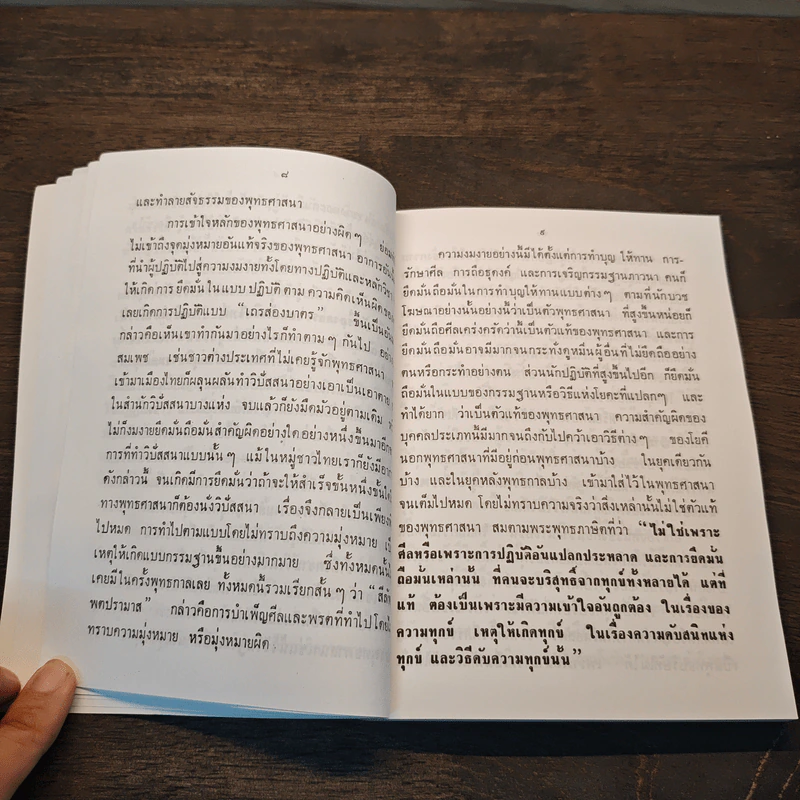 ๘
และทำลายสัจธรรมของพุทธศาสนา
การเข้าใจหลักของพุทธศาสนาอย่างผิดๆ
ไม่เข้าถึงจุดมุ่งหมายอันแท้จริงของพุทธศาสนา อาการอัน
ที่นำผู้ปฏิบัติไปสู่ความงมงายทั้งโดยทางปฏิบัติและหลักวิชา
ให้เกิดการยึดมั่นในแบบปฏิบัติตาม ความคิดเห็นผิดของ
เลยเกิดการปฏิบัติแบบ "เถรส่องบาตร" ขึ้นเป็นอัน
กล่าวคือเห็นเขาทำกันมาอย่างไรก็ทำตามๆ กันไป
สมเพช เช่นชาวต่างประเทศที่ไม่เคยรู้จักพุทธศาสนา
เข้ามาเมืองไทยก็ผลุนผลันทำวิปัสสนาอย่างเอาเป็นเอาตาย
ในสำนักวิปัสสนาบางแห่ง จบแล้วก็ยังมืดมัวอยู่ตามเดิม
ไม่ก็งมงายยึดมั่นถือมั่นสำคัญผิดอย่างใดอย่างหนึ่งขึ้นมาอีก
การที่ทำวิปัสสนาแบบนั้นๆ แม้ในหมู่ชาวไทยเราก็ยังมีอาก
ดังกล่าวนี้ จนเกิดมีการยึดมั่นว่าถ้าจะให้สำเร็จชั้นหนึ่งชั้นใด
ทางพุทธศาสนาก็ต้องนั่งวิปัสสนา เรื่องจึงกลายเป็นเพียงพิ
ไปหมด การทำไปตามแบบโดยไม่ทราบถึงความมุ่งหมาย เป็
เหตุให้เกิดแบบกรรมฐานขึ้นอย่างมากมาย ซึ่งทั้งหมดนั้นไ
เคยมีในครั้งพุทธกาลเลย ทั้งหมดนี้รวมเรียกสั้นๆ ว่า "สีลัพ
พตปรามาส" กล่าวคือการบำเพ็ญศีลและพรตที่ทำไปโดยไม่
ทราบความมุ่งหมาย หรือมุ่งหมายผิด
๙
ความงมงายอย่างนี้มีได้ตั้งแต่การทำบุญ ให้ทาน การ-
รักษาศีล การถือธุดงค์ และการเจริญกรรมฐานภาวนา คนก็
ยึดมั่นถือมั่นในการทำบุญให้ทานแบบต่างๆ ตามที่นักบวช
โฆษณาอย่างนั้นอย่างนี้ว่าเป็นตัวพุทธศาสนา ที่สูงขึ้นหน่อยก็
ยึดมั่นถือศีลเคร่งครัดว่านี้เป็นตัวแท้ของพุทธศาสนา และการ
ยึดมั่นถือมั่นอาจมีมากจนกระทั่งดูหมิ่นผู้อื่นที่ไม่ยึดถืออย่าง
ตนหรือกระทำอย่างตน ส่วนนักปฏิบัติที่สูงขึ้นไปอีก ก็ยึดมั่น
ถือมั่นในแบบของกรรมฐานหรือวิธีแห่งโยคะที่แปลกๆ และ
ทำได้ยาก ว่าเป็นตัวแท้ของพุทธศาสนา ความสำคัญผิดของ
บุคคลประเภทนี้มีมากจนถึงกับไปคว้าเอาวิธีต่างๆ ของโยคี
นอกพุทธศาสนาที่มีอยู่ก่อนพุทธศาสนาบ้าง ในยุคเดียวกัน
บ้าง และในยุคหลังพุทธกาลบ้าง เข้ามาใส่ไว้ในพุทธศาสนา
จนเต็มไปหมด โดยไม่ทราบความจริงว่าสิ่งเหล่านั้นไม่ใช่ตัวแท้
ของพุทธศาสนา สมตามพระพุทธภาษิตที่ว่า "ไม่ใช่เพราะ
ศีลหรือเพราะการปฏิบัติอันแปลกประหลาด และการยึดมั่น
ถือมั่นเหล่านั้น ที่คนจะบริสุทธิ์จากทุกข์ทั้งหลายได้ แต่ที่
แท้ ต้องเป็นเพราะมีความเข้าใจอันถูกต้อง ในเรื่องของ
ความทุกข์ เหตุให้เกิดทุกข์ ในเรื่องความดับสนิทแห่ง
ทุกข์ และวิธีดับความทุกข์นั้น"